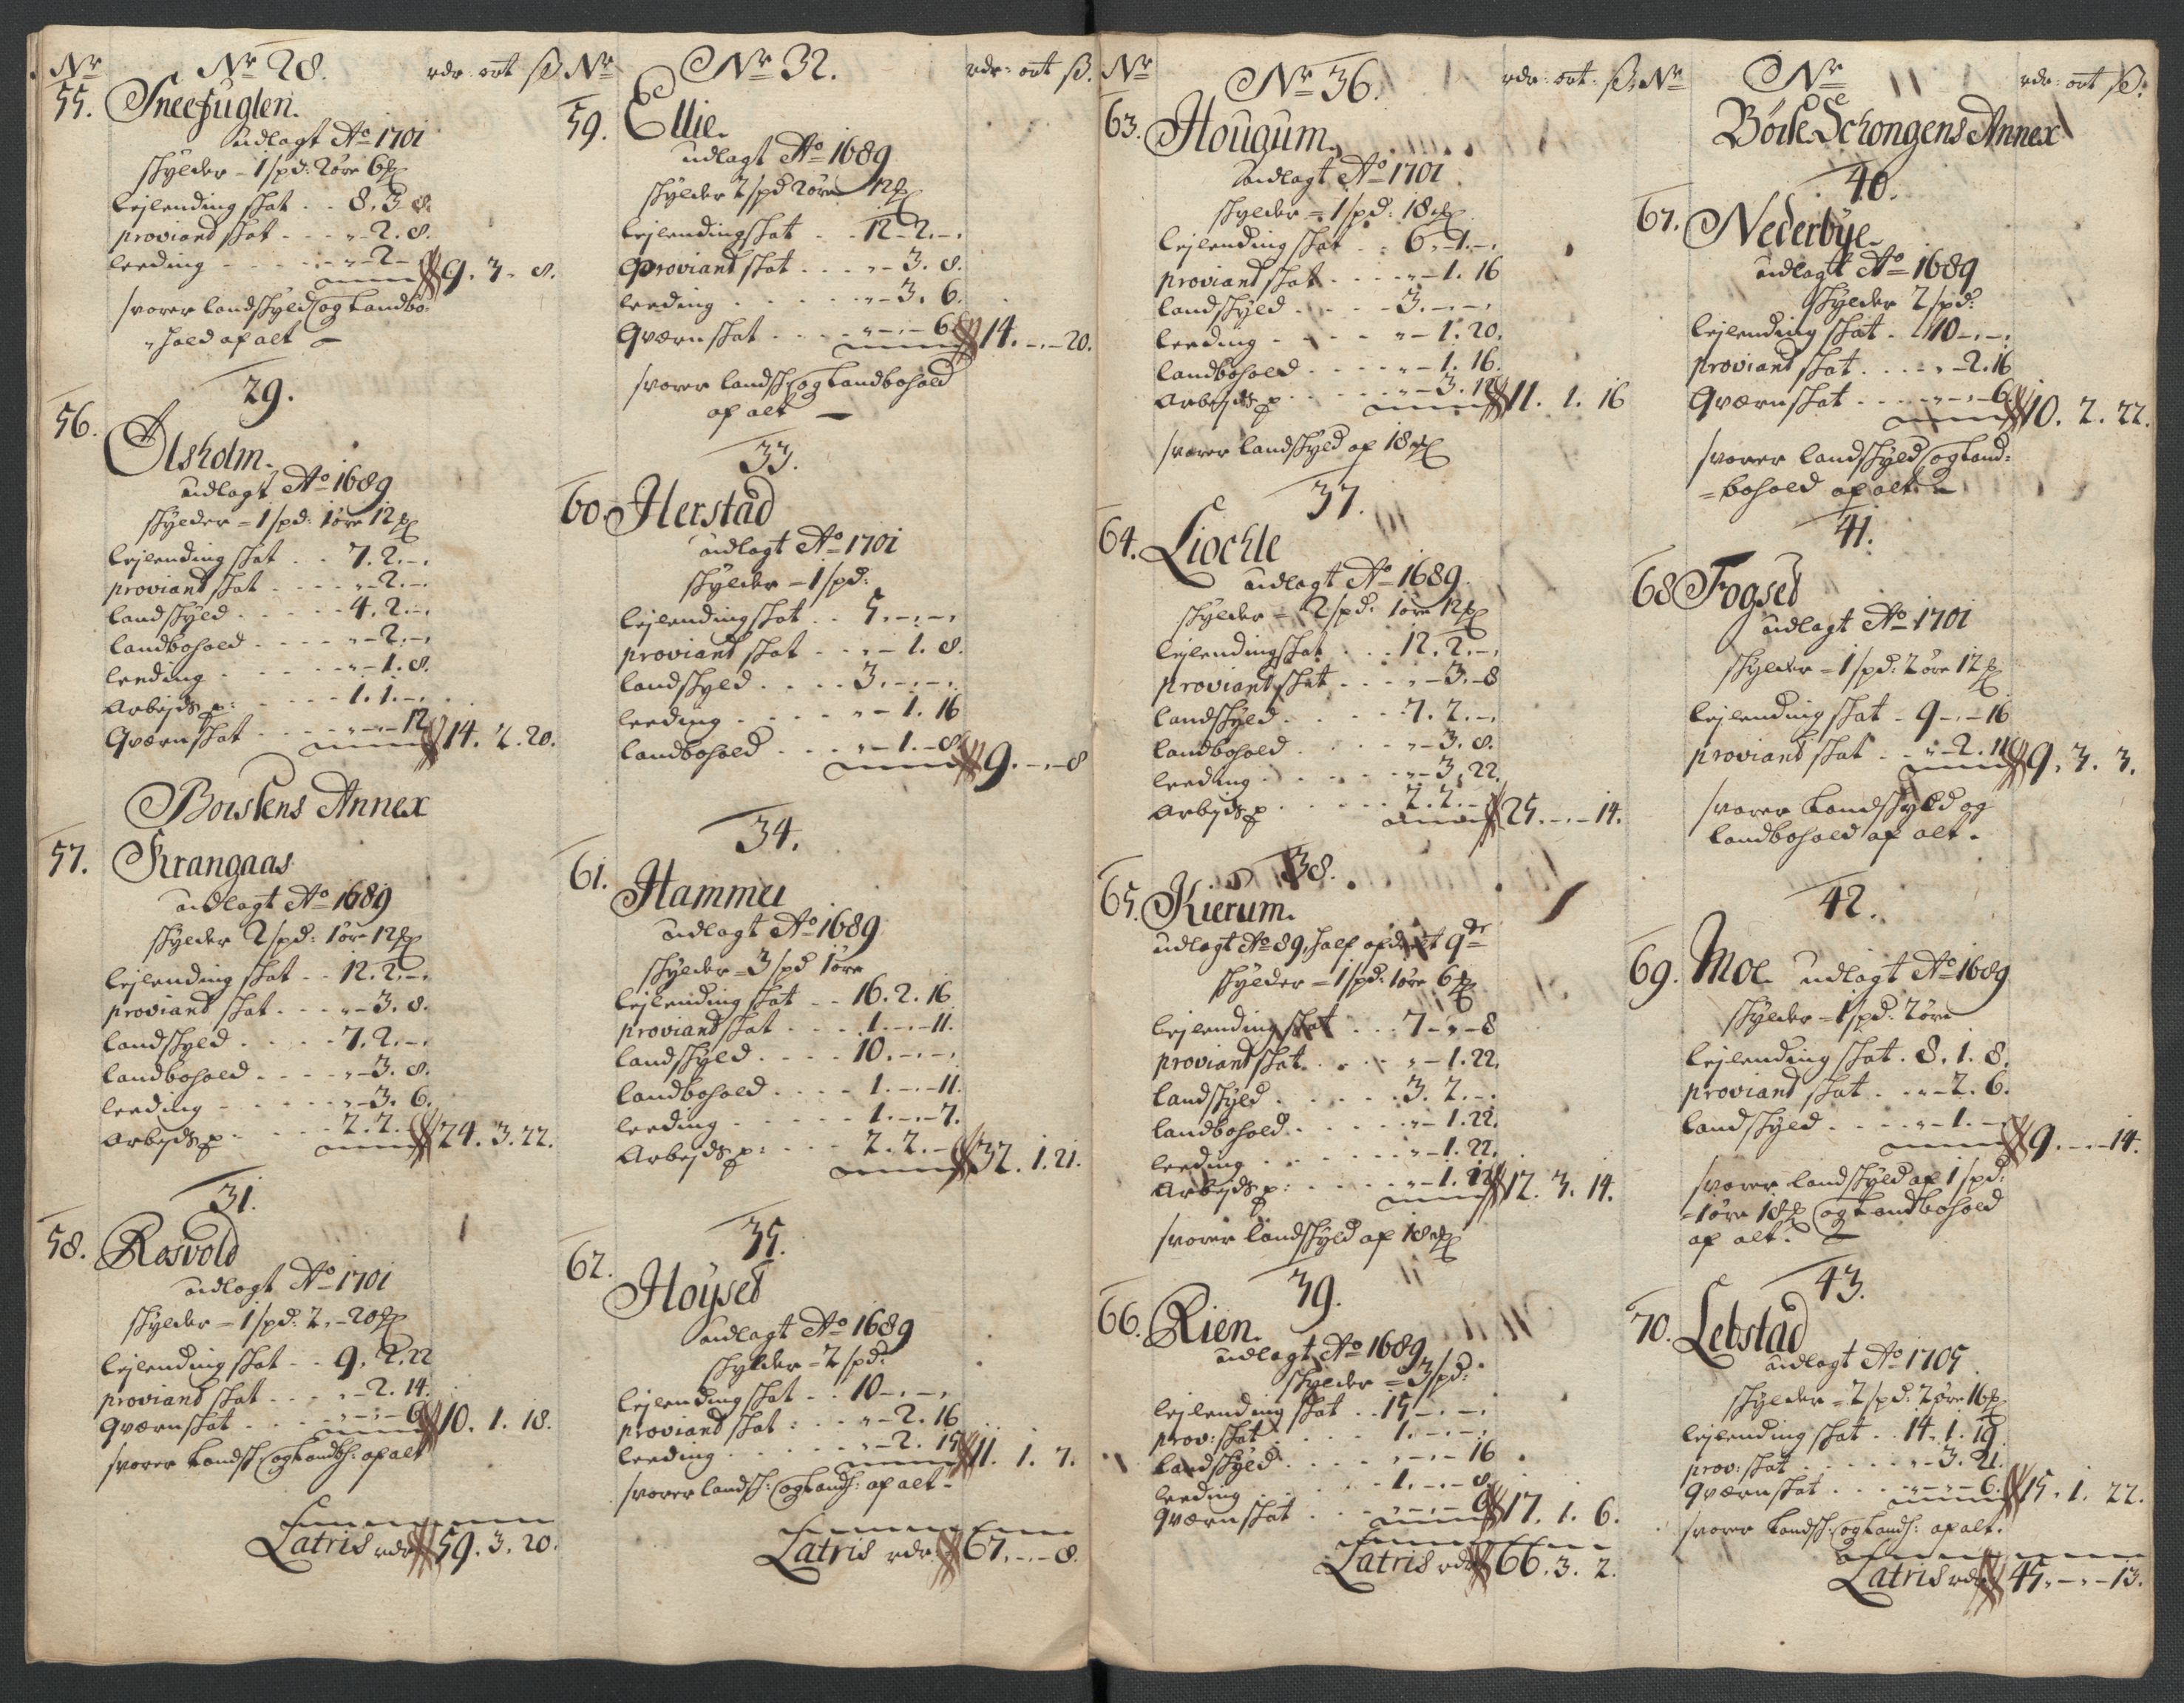 Nr Nr 28. rdr: ort ß
55. Sneefuglen.
udlagt Ao 1701
skylder - 1 spd: 2 øre 6 [?]
lejlending skat . . 8. 3 8.
proviant skat . . . - 2. 8.
leeding . . . . - 2 - 9. 3. 8.
svarer landskyld og landbo-
hold af alt -
29.
56. Olsholm.
udlagt Ao 1689
skylder - 1 spd: 1 øre 12
lejlending skat . . 7. 2. -.
proviant skat . . . - 2. -.
landskyld . . . . 4. 2. -.
landbohold . . . . - 2. -.
leeding . . . . - 1. 8.
Arbejds p: . . . . 1. 1. -.
Qværnskat . . . . - - 12 14. 2. 20.
Børsens Annex
57. Krangaas
udlagt Ao 1689
skylder 2 spd: 1 øre 12
lejlending skat . . 12. 2. -.
proviant skat . . . - 3. 8.
landskyld . . . . 7. 2. -.
landbohold . . . . - 3. 8.
leeding . . . . - 3. 6.
Arbejds p . . . . 2. 2. 24. 3. 22.
31.
58. Rosvold
udlagt Ao 1701
skylder - 1 spd: 2. - 20
lejlending skat . . 9. 2. 22
proviant skat . . . - 2. 14.
Qværnskat . . . - - 6 10. 1. 18.
svarer Landsk: og Landbh: af alt
Latris rdr 59. 3. 20.
Nr Nr 32. rdr: ort ß.
59. Ellie.
udlagt Ao 1689
skylder 2 spd 2 øre 12
lejlendingskat . . 12 - 2. -.
Proviant skat . . . - 3. 8.
leeding . . . . - 3. 6.
Qværnskat . . . - - 6 14. - - 20.
svarer landsk: og Landbohold
af alt -
33.
60. Herstad
udlagt Ao 1701
skylder - 1 spd:
lejlendingskat . . 5. - . -.
proviant skat . . . - 1. 8.
landskyld . . . . 3. - . -.
leeding . . . . - 1. 16
landbohold . . . - 1. - 8. 9. - - 8
34.
61. Hammer
udlagt Ao 1689
skylder - 3 spd 1 øre
lejlending skat . . 16. 2. 16
proviant skat . . . 1. - - 11.
landskyld . . . . 10. - . -.
landbohold . . . . 1. - - 11.
leeding . . . . 1. - - 7.
Arbejds p: . . . 2. 2. - 32. 1. 21.
35.
62. Høysed
udlagt Ao 1689
skylder - 2 spd:
lejlendingskat . . 10 - . -.
proviant skat : . . - 2. 16
leeding . . . . - 2. 15 11. 1. 7.
svarer landsk: og Landh: af alt -
Latris rdr. 67. - - 8.
Nr Nr 36. rdr: ort: ß:
63. Hougum.
udlagt Ao 1701
skylder - 1 spd: 18
lejlending skat . . 6. - 1. -.
proviant skat . . . - 1. 16
landskyld . . . . 3. - . -.
leeding . . . . - 1. 20.
landbohold . . . . - 1. 16.
Arbejds p . . . . - 3. 12 11. 1. 16
svarer landskyld af 18
37.
64. Liochle
udlagt Ao 1689.
skylder - 2 spd: 1 øre 12
lejlendingskat . . 12. 2. -.
proviant skat . . . - 3. - 8
landskyld . . . . 7. 2. -.
landbohold . . . . - 3. 8.
leeding . . . . - 3. 22.
Arbejds p . . . . 2. 2. - 25. - - 14.
38.
65. Kierum.
udlagt Ao 89, half af det 9de
skylder - 1 spd: 1 øre 6
lejlending skat . . . 7 - - 8
proviant skat . . . - 1. 22.
landskyld . . . . 3. 2. -.
landbohold . . . . - 1. 22.
leeding . . . . - 1. 22.
Arbejds p: . . . . - 1. 22 12. 3. 14.
svarer landskyld af 18
39.
66. Rien.
udlagt Ao 1689
skylder - 3 spd:
lejlending skat . . 15 - . -.
prov: skat . . . . 1. - . -.
Landskyld . . . . - - 16
leeding . . . . 1. - - 8.
Qværnskat . . . - - 6 17. 1. 6.
Latris rdr 66. 3. 2.
Nr Nr rdr: ort ß.
Børse Schongens Annex
40.
67. Nederbÿe.
udlagt Ao 1689
skylder 2 spd:
lejlending skat . . 10 - . -.
proviant skat . . . - 2. 16
Qværnskat . . . . - - 6 10. 2. 22.
svarer landskyld og Land-
bohold af alt -
41.
68 Fogsed
udlagt Ao 1701
skylder - 1 spd: 2 øre 12
lejlending skat - 9 - - 16
proviant skat . . - 2. 11 9. 3. 3.
svarer Landskyld og
landbohold af alt -
42.
69. Moe udlagt Ao 1689
skylder - 1 spd: 2 øre
lejlending skat . 8. 1. 8.
proviant skat . . - 2. 6.
landskyld . . . . - 1. - 9. - - 14.
svarer landskyld af 1 spd:
1 øre 18 og Landbohold
af alt. -
43.
70. Lebstad
udlagt Ao 1705
skylder - 2 spd: 2 øre 16
lejlending skat . . 14. 1. 19.
prov: skat . . . . - 3. 21.
Qværnskat . . . . - - 6. 15. 1. 22.
svarer Landsk: og Landh: af alt.
Latris rdr 45. - - 13.